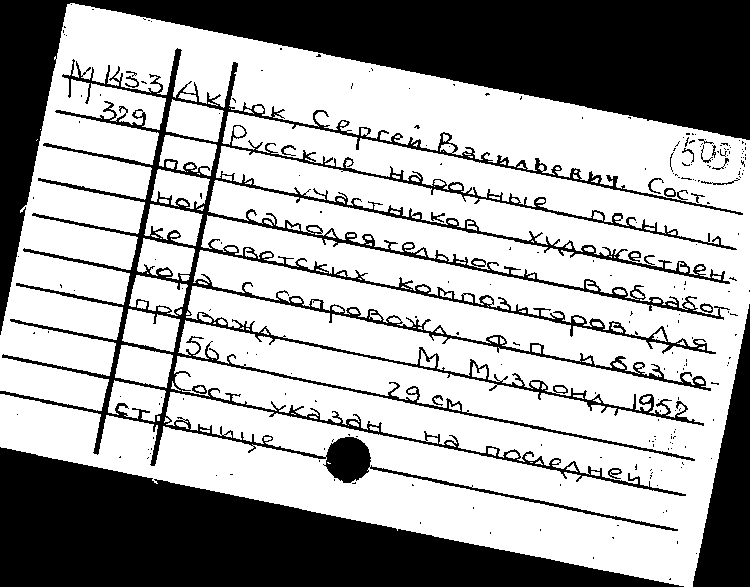 М 143-3
329
509
Аксюк, Сергей Васильевич. Сост.
Русские народные песни и
песни участников художествен-
ной самодеятельности в обработ-
ке советских композиторов. Для
хора с сопровожд. ф-п и без со-
провожд. М., Музфонд, 1952.
56 с. 29 см.
Сост. указан на последней
странице